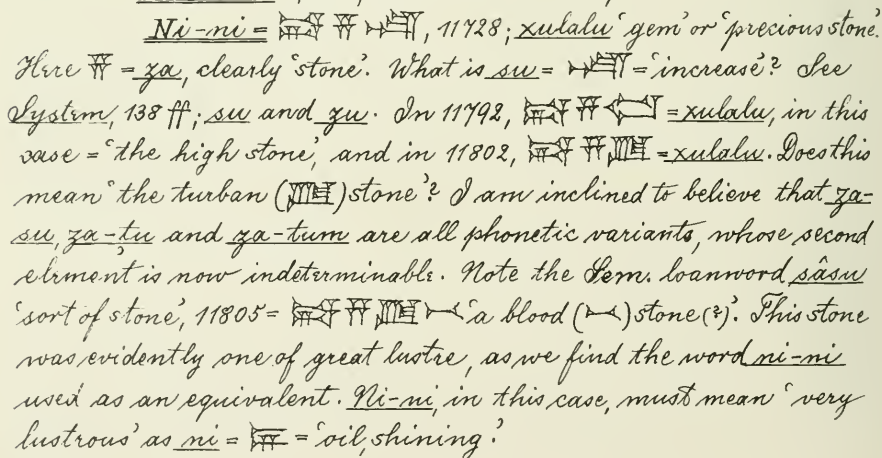 Ni-ni = 𒍝, 11728; xulalu 'gem' or 'precious stone'.
Here 𒍝 = za, clearly 'stone'. What is su = = 'increase'? See
System, 138 ff; su and zu. In 11792, 𒍝 = xulalu, in this
case = 'the high stone', and in 11802, 𒍝 = xulalu. Does this
mean 'the turban ( ) stone'? I am inclined to believe that za-
su, za-tu and za-tum are all phonetic variants, whose second
element is now indeterminable. Note the Sem. loanword sâsu
'sort of stone', 11805 = 𒍝 'a blood ( ) stone (?)'. This stone
was evidently one of great lustre, as we find the word ni-ni
used as an equivalent. Ni-ni, in this case, must mean 'very
lustrous' as ni = 𒉌 = 'oil, shining'.